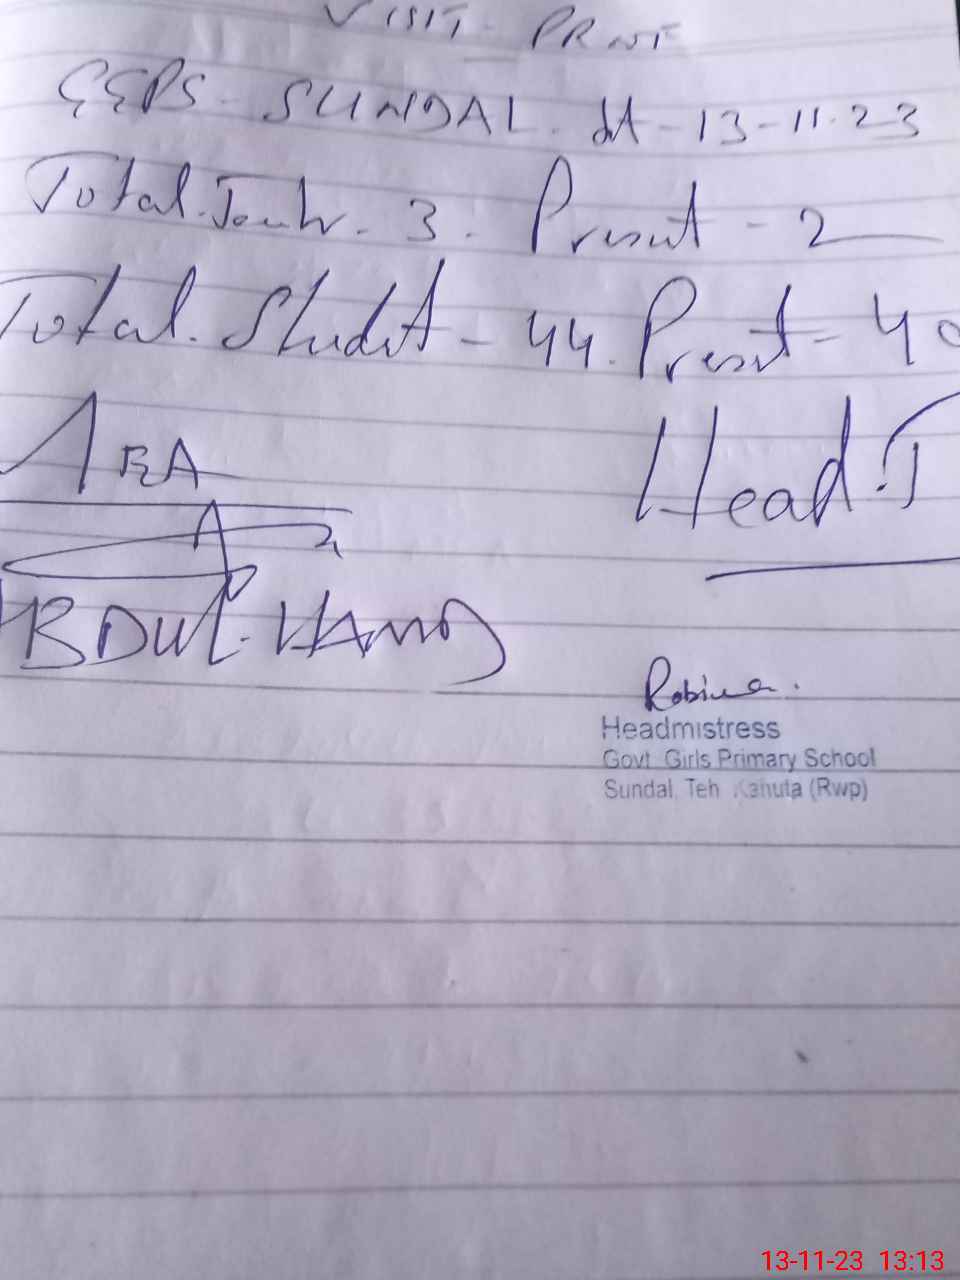 VISIT - PRNT
GGPS - SUNDAL. dt - 13-11-23
Total. Teacher. 3. Present - 2
Total. Student - 44. Present - 40
AEA
Head. T
ABDUL. HAMID
Robina.
Headmistress
Govt Girls Primary School
Sundal, Teh Kahuta (Rwp)
13-11-23 13:13